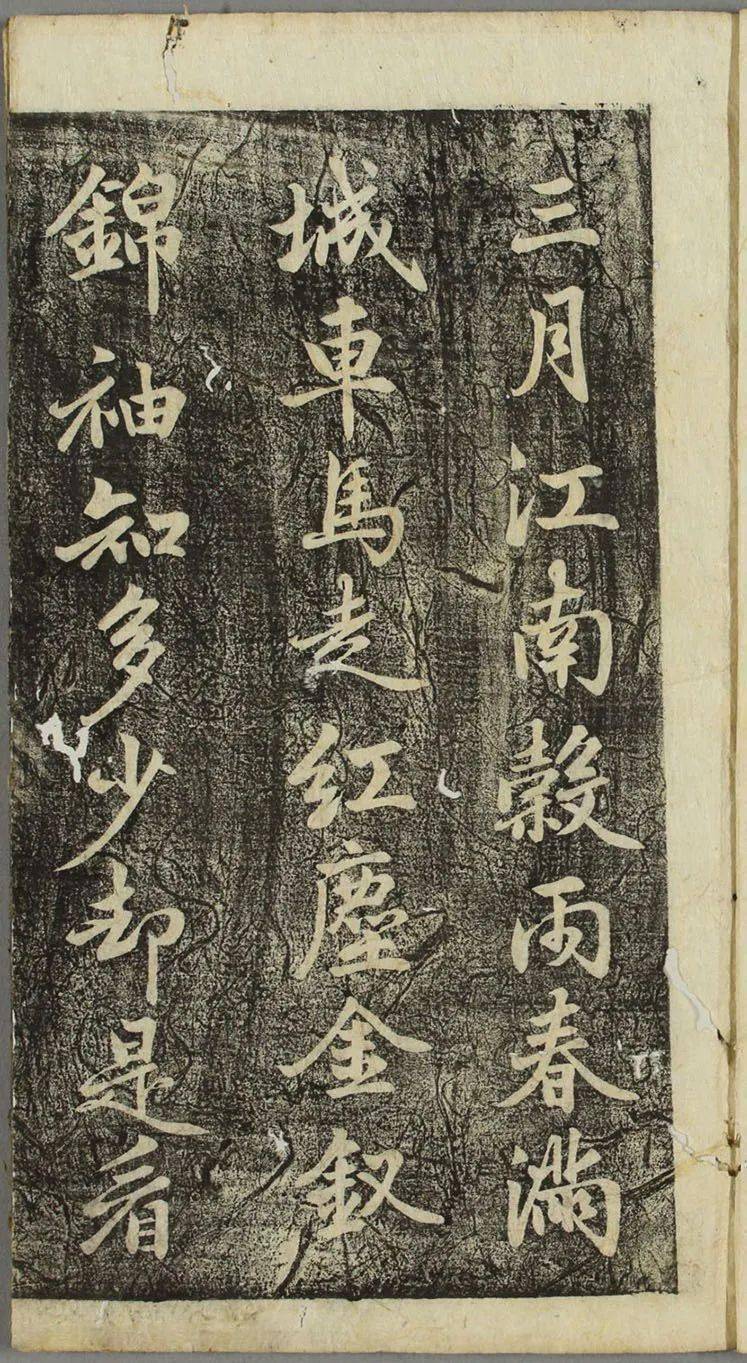 三月江南榖雨春滿
城車馬走紅塵金釵
錦袖知多少却是看